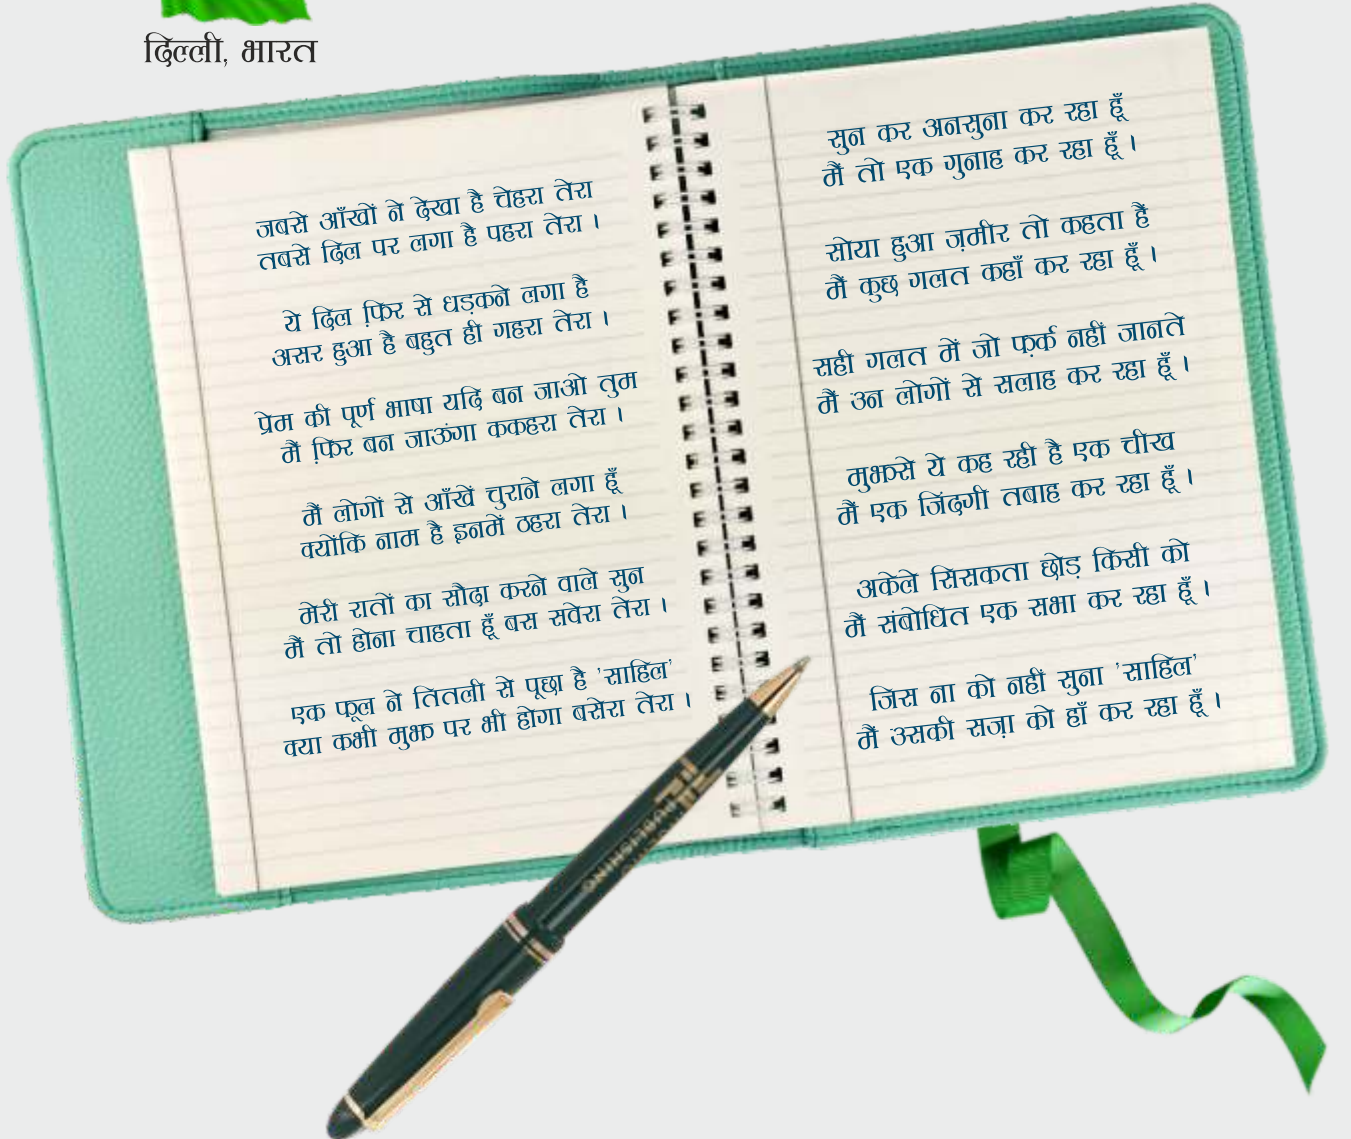 दिल्ली, भारत
जबसे आँखों ने देखा है चेहरा तेरा
तबसे दिल पर लगा है पहरा तेरा ।
ये दिल फ़िर से धड़कने लगा है
असर हुआ है बहुत ही गहरा तेरा ।
प्रेम की पूर्ण भाषा यदि बन जाओ तुम
मैं फ़िर बन जाऊंगा ककहरा तेरा ।
मैं लोगों से आँखें चुराने लगा हूँ
क्योंकि नाम है इनमें ठहरा तेरा ।
मेरी रातों का सौदा करने वाले सुन
मैं तो होना चाहता हूँ बस सवेरा तेरा ।
एक फूल ने तितली से पूछा है 'साहिल'
क्या कभी मुझ पर भी होगा बसेरा तेरा ।
सुन कर अनसुना कर रहा हूँ
मैं तो एक गुनाह कर रहा हूँ ।
सोया हुआ ज़मीर तो कहता है
मैं कुछ गलत कहाँ कर रहा हूँ ।
सही गलत में जो फ़र्क नहीं जानते
मैं उन लोगों से सलाह कर रहा हूँ ।
मुझसे ये कह रही है एक चीख
मैं एक जिंदगी तबाह कर रहा हूँ ।
अकेले सिसकता छोड़ किसी को
मैं संबोधित एक सभा कर रहा हूँ ।
जिस ना को नहीं सुना 'साहिल'
मैं उसकी सज़ा को हाँ कर रहा हूँ ।
PUBLISHING